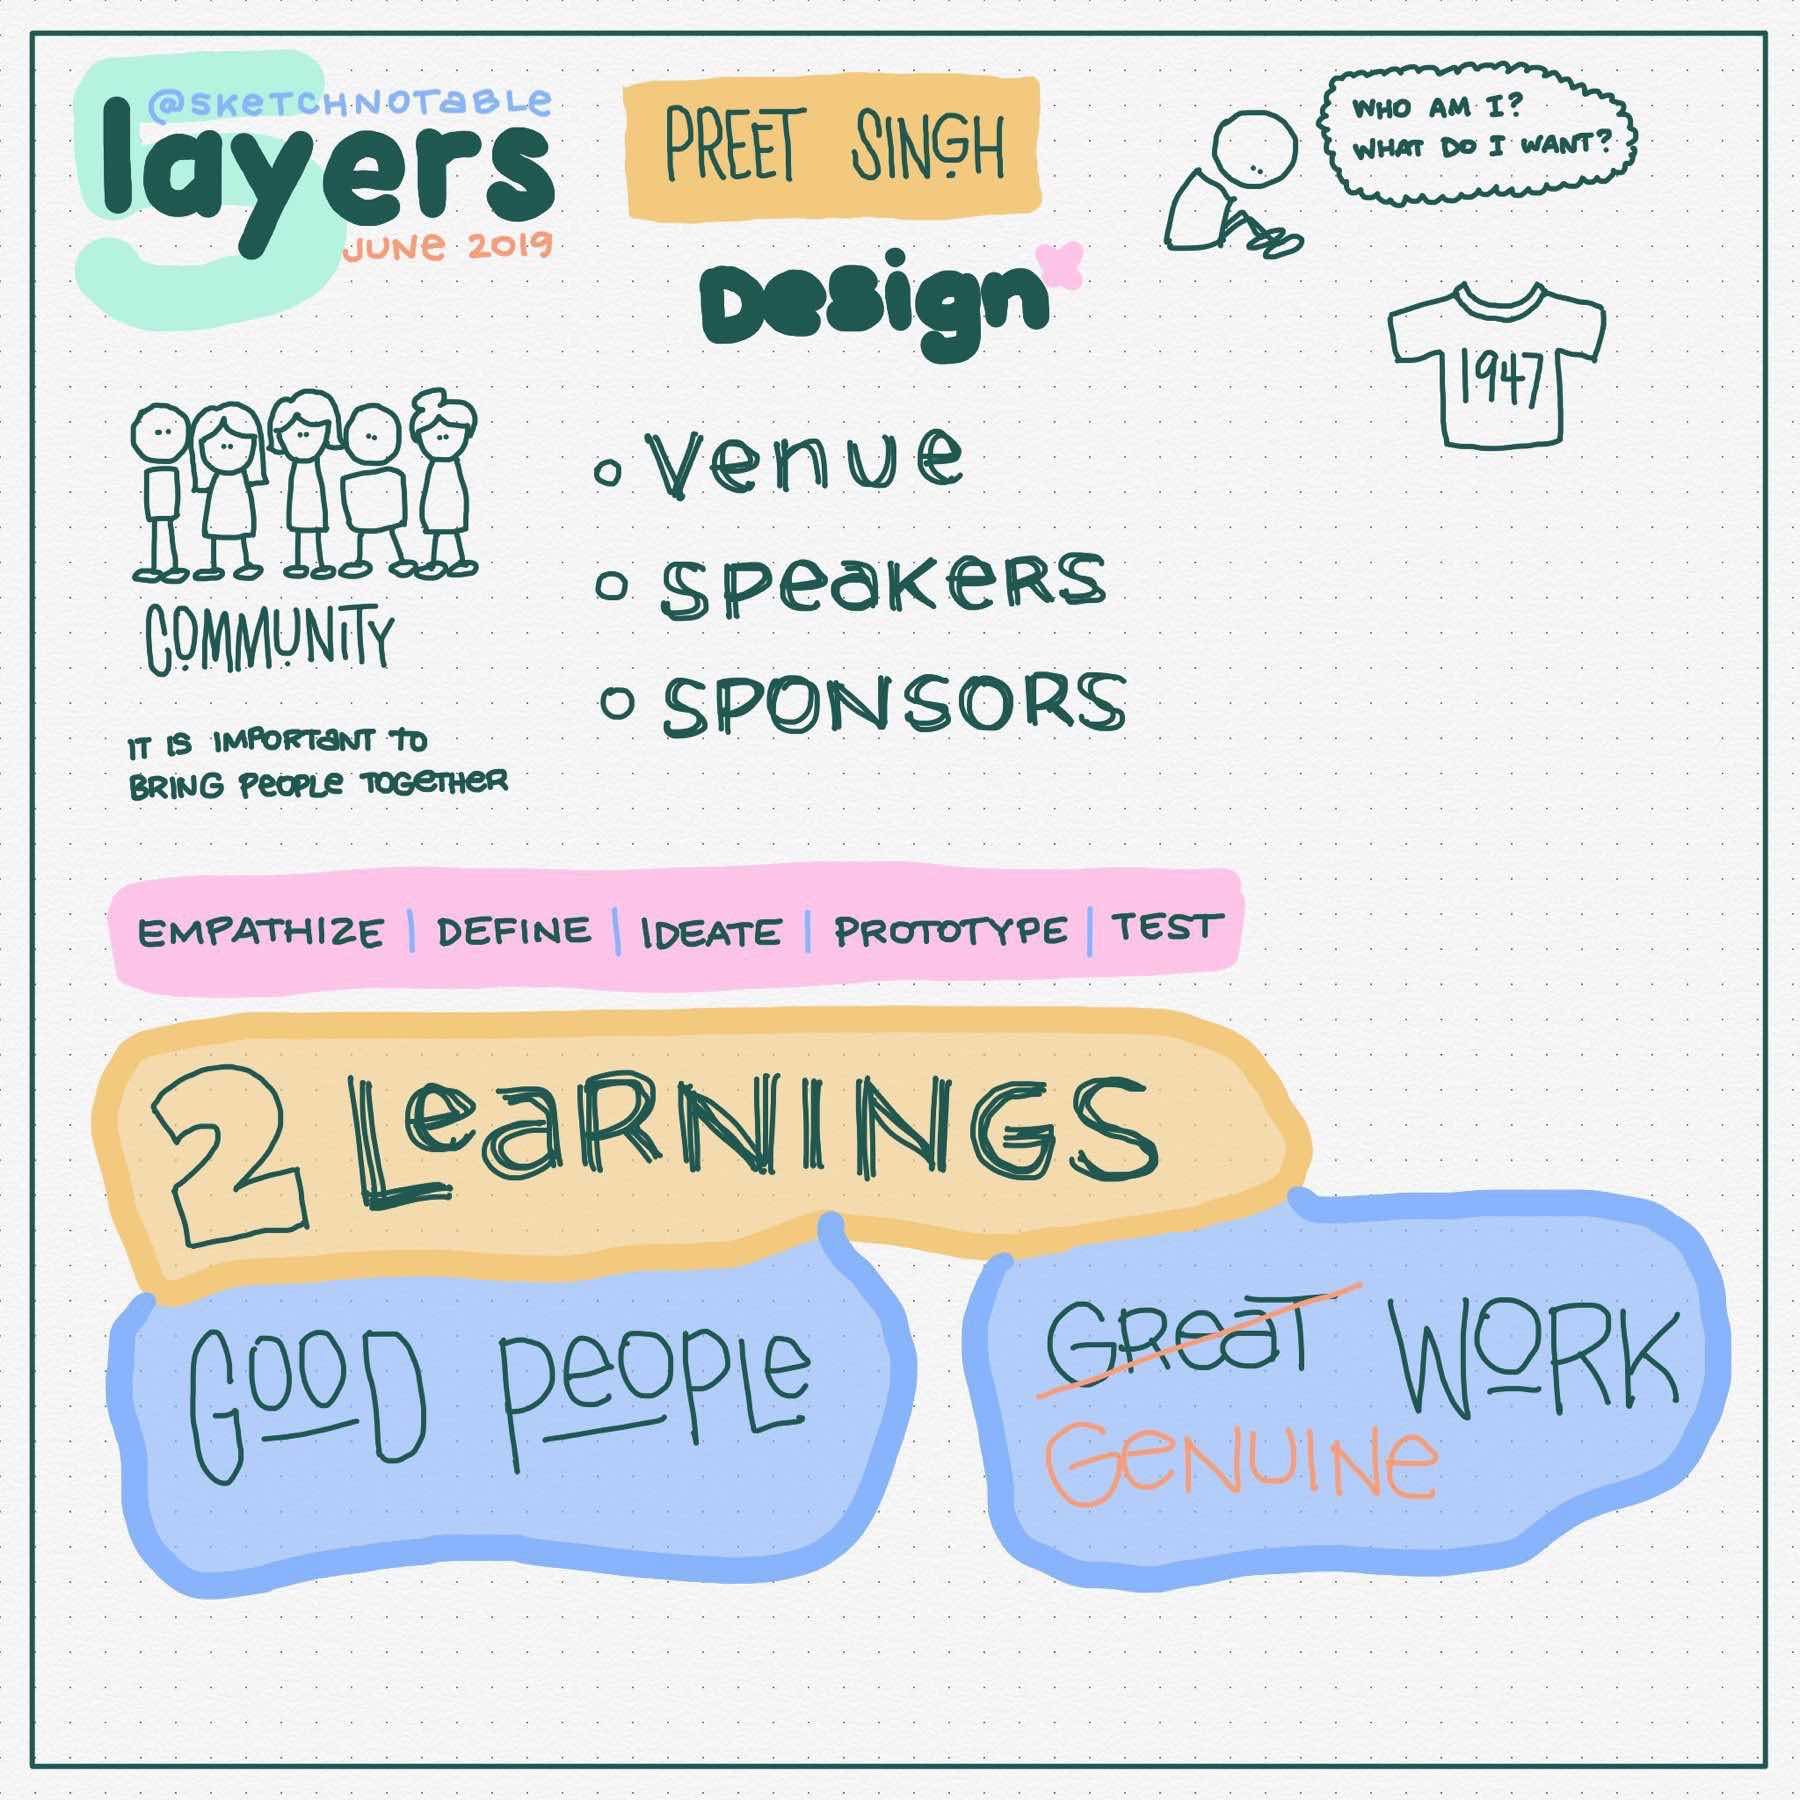 @SKETCHNOTABLE
layers
JUNE 2019
5
PREET SINGH
Design
WHO AM I?
WHAT DO I WANT?
1947
COMMUNITY
IT IS IMPORTANT TO
BRING PEOPLE TOGETHER
VENUE
SPEAKERS
SPONSORS
EMPATHIZE | DEFINE | IDEATE | PROTOTYPE | TEST
2 LEARNINGS
GOOD PEOPLE
GREAT WORK
GENUINE